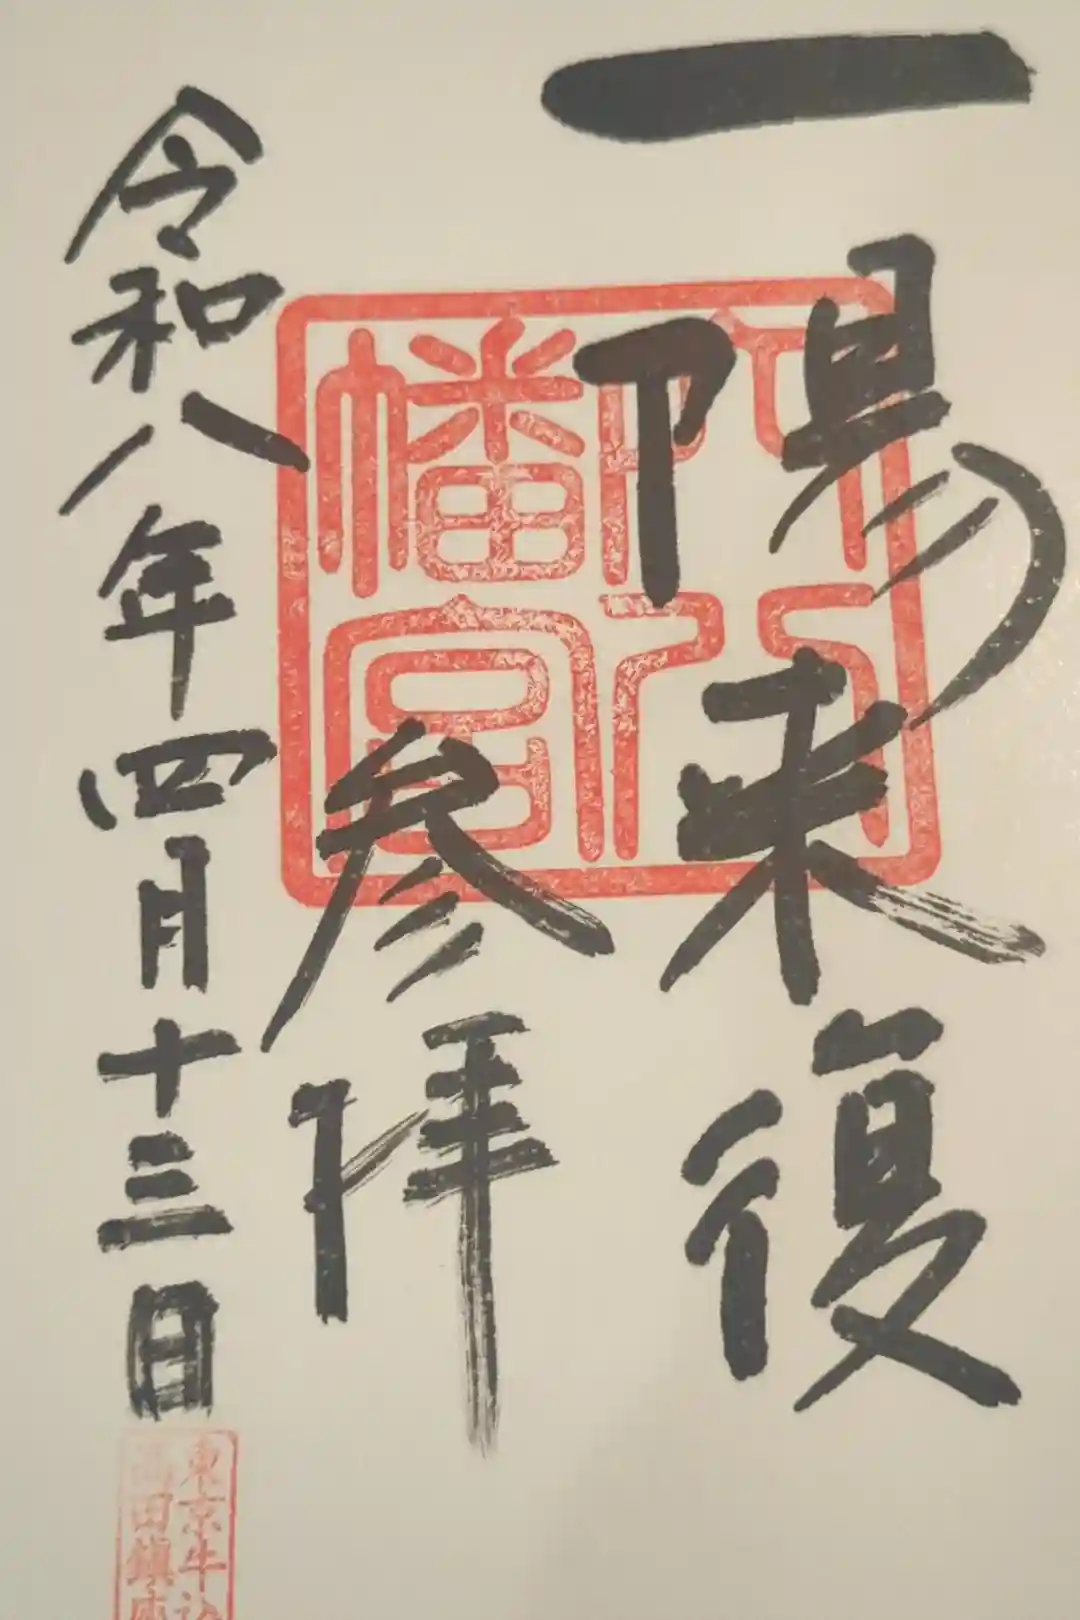 一陽来復
参拝
令和八年四月十三日
阿八幡宮
東京牛込
高田鎮座